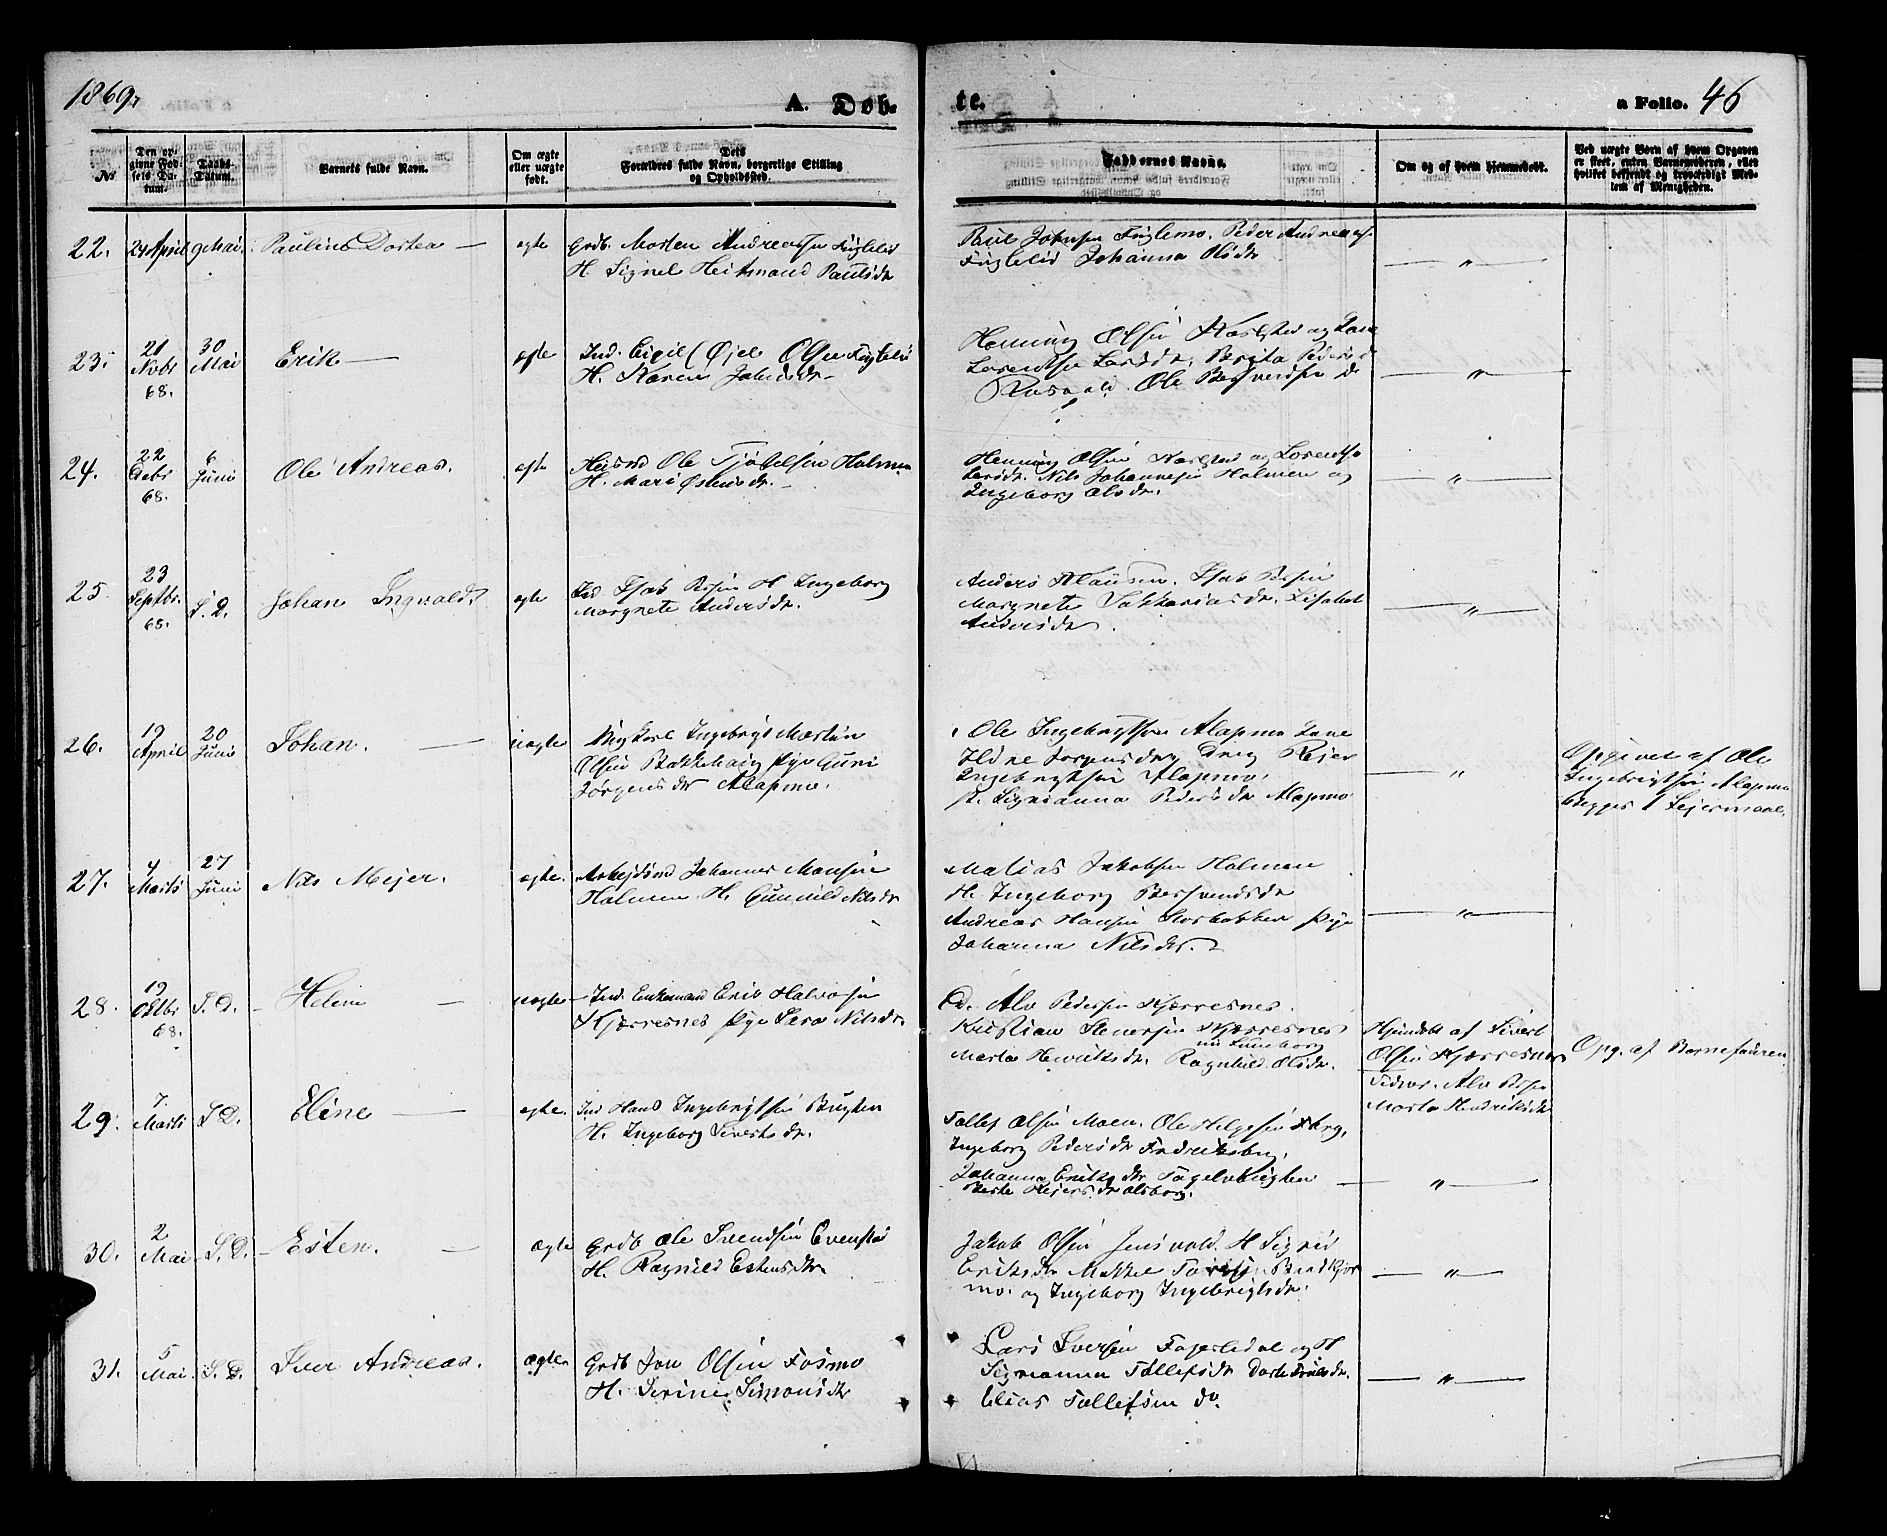 1869.
A. Døb-
te.
a Folio. 46
No
Den opgivne Fødsels Datum.
Daabs-Datum.
Barnets fulde Navn.
Om ægte eller uægte født.
Dets Forældres fulde Navn, borgerlige Stilling og Opholdssted.
Faddernes Navne.
Om og af hvem hjemmedøbt.
Ved uægte Børn af hvem Opgaven er skeet, enten Barnemoderen, eller hvilket bekjendt og troværdigt Medlem af Menigheden.
22. 24 April 9 Mai. Paulina Dortea — egte
Grdb. Morten Andreassen Fuglelid
H. Signel Heitmand Paulsdr
Paul Johnsen Fuglemo. Peder Andreas.
Fuglelid Johanna Olsdr
— " —
23. 21 Nvbr 68. 30 Mai Erik — ægte
Ind. Eigil (Øjel Olsen Fuglelid
H. Karen Johnsdr
Henning Olsen Karlstad og Kone
Lorentse Larsdr, Berita Pedersdr
Rusvold. Ole Bersvendsen do
— " —
24. 22 Decbr 68. 6 Juni Ole Andreas. egte
Huusmd Ole Tjøbelsen Holmen
H. Mari Østensdr. —
Henning Olsen Karlstad og Lorentse
Larsdr. Nils Johannesen Holmen og
Ingeborg Olsdr.
— " —
25. 23 Septbr. 68. S. D. Johan Ingvald. egte
Ind. Isak Persen H Ingeborg
Margrete Andersdr.
Anders Klausen. Isak Persen
Margrete Sakkariasdr. Lisabet
Andersdr.
— " —
26. 19 April 20 Juni Johan. — uægte
Ungkarl Ingebrigt Martin
Olsen Bakkehaug Pige Guri
Jørgensdr Alapmo.
Ole Ingebrigtsen Alapmo Kone
Eline Jorgensdr, Dreng Rejer
Ingebrigtsen Alapmo,
P. Signianna Pedersdr Alapmo
— " —
Opgivet af Ole
Ingebrigtsen Alapmo
begges 1 Leiermaal.
27. 4 Marts 27 Juni Nils Mejer. egte.
Arbejdsmd Johannes Monsen
Holmen H. Gunnild Nilsdr
Matias Jakobsen Holmen
H. Ingeborg Bersvendsdr
Andreas Hansen Storbakken Pige
Johanna Nilsdr.
— " —
28. 19 Oktbr 68. S. D. Heline — uægte
Ind. Enkemand Erik Halvorsen
Kjærresnes Pige Sara Nilsdr.
Ed. Alv Pedersen Kjærresnes.
Kristian Stenersen Kjærresnes
Marta Henriksdr. Ragnhild Olsdr.
Hjemdøbt af Sivert
Olsen Kjærresnes
Fadres. Alv Persen
Marta Hendriksdr
Opg. af Barnefaderen
29. 7. Marts S D. Eline — egte.
Ind Hans Ingebrigtsen Bugten
H. Ingeborg Sivertsdr.
Tollef Olsen Moen. Ole Helgesen
Ingeborg Pedersdr Fredriksberg,
Johanna Eriksdr
— " —
30. 2 Mai S. D. Esten. — ægte
Grdb Ole Svendsen Evenstad
H. Ragnild Estensdtr
Jakob Olsen Jensvold. H Sigrid
Eriksdr Mikkel
mo. og Ingeborg Ingebrigtsdr.
— " —
31. 5 Mai. S. D. Iver Andreas. ægte
Grdb Jon Olsen Fosmo
H. Serine Simonsdr
Lars Iversen Fagerlidal og H
Signianna Tollefsdr
Elias Tollefsen do.
— " —